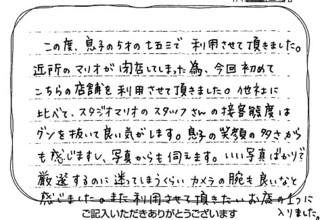 この度、息子の5才の七五三で 利用させて頂きました。
近所のマリオが閉店してしまった為、今回初めて
こちらの店舗を利用させて頂きました。他社に
比べて、スタジオマリオのスタッフさんの接客態度は
グンを抜いて良い気がします。息子の笑顔の多さから
も感じますし、写真からも伺えます。いい写真ばかりで
厳選するのに迷ってしまうくらい カメラの腕も良いなと
感じました。また利用させて頂きたいお店の1つに
入りました。
ご記入いただきありがとうございます